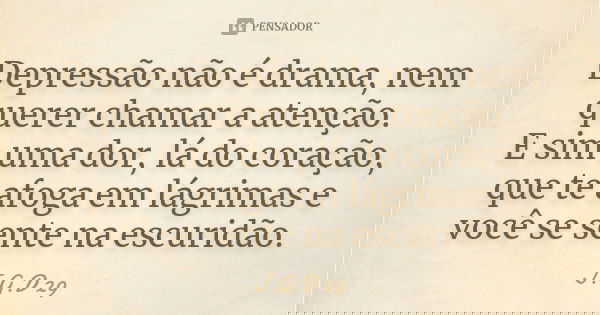 PENSADOR
Depressão não é drama, nem
querer chamar a atenção.
E sim uma dor, lá do coração,
que te afoga em lágrimas e
você se sente na escuridão.